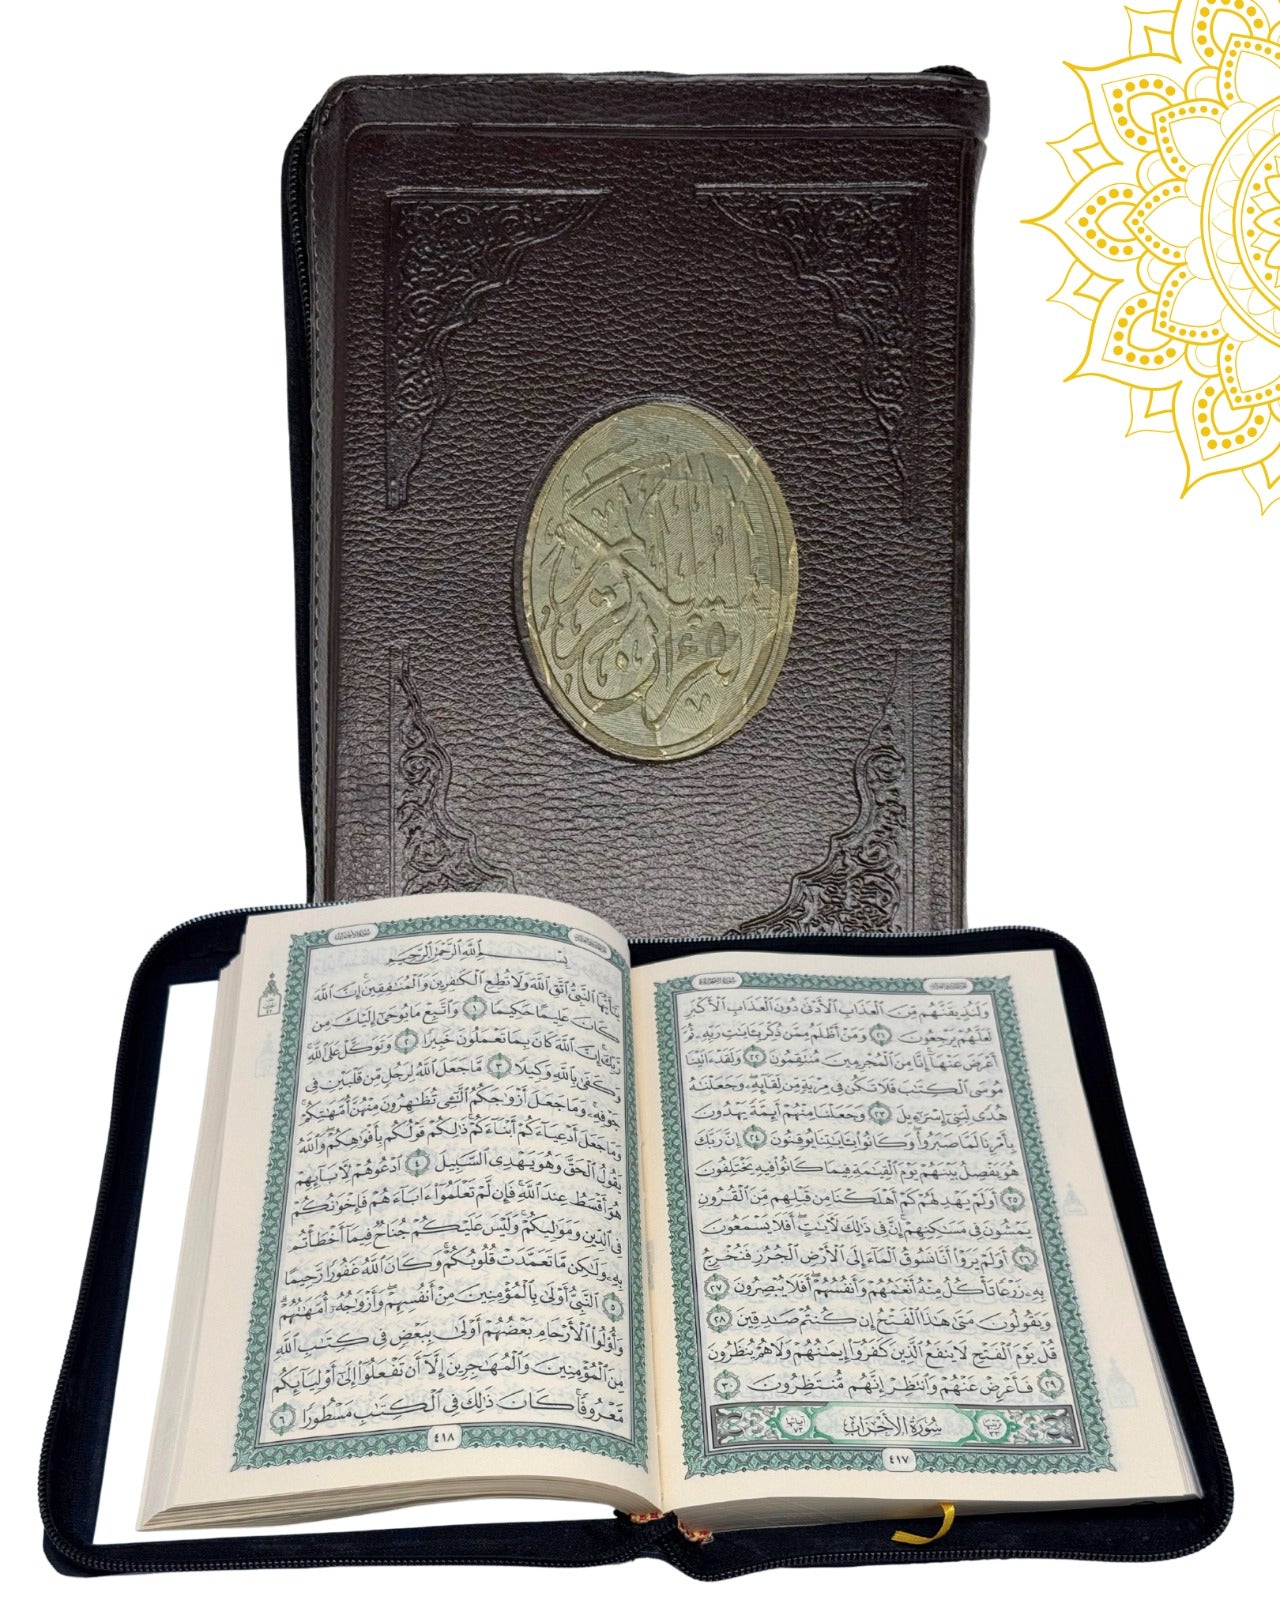 القرءان الكريم
سورة السجدة
وَلَنُذِيقَنَّهُم مِّنَ ٱلْعَذَابِ ٱلْأَدْنَىٰ دُونَ ٱلْعَذَابِ ٱلْأَكْبَرِ
لَعَلَّهُمْ يَرْجِعُونَ ٢١ وَمَنْ أَظْلَمُ مِمَّن ذُكِّرَ بِـَٔايَٰتِ رَبِّهِۦ ثُمَّ
أَعْرَضَ عَنْهَآ إِنَّا مِنَ ٱلْمُجْرِمِينَ مُنتَقِمُونَ ٢٢ وَلَقَدْ ءَاتَيْنَا
مُوسَى ٱلْكِتَٰبَ فَلَا تَكُن فِى مِرْيَةٍ مِّن لِّقَآئِهِۦ وَجَعَلْنَٰهُ
هُدًى لِّبَنِىٓ إِسْرَٰٓءِيلَ ٢٣ وَجَعَلْنَا مِنْهُمْ أَئِمَّةً يَهْدُونَ
بِأَمْرِنَا لَمَّا صَبَرُوا۟ وَكَانُوا۟ بِـَٔايَٰتِنَا يُوقِنُونَ ٢٤ إِنَّ رَبَّكَ
هُوَ يَفْصِلُ بَيْنَهُمْ يَوْمَ ٱلْقِيَٰمَةِ فِيمَا كَانُوا۟ فِيهِ يَخْتَلِفُونَ
٢٥ أَوَلَمْ يَهْدِ لَهُمْ كَمْ أَهْلَكْنَا مِن قَبْلِهِم مِّنَ ٱلْقُرُونِ
يَمْشُونَ فِى مَسَٰكِنِهِمْ إِنَّ فِى ذَٰلِكَ لَءَايَٰتٍ أَفَلَا يَسْمَعُونَ
٢٦ أَوَلَمْ يَرَوْا۟ أَنَّا نَسُوقُ ٱلْمَآءَ إِلَى ٱلْأَرْضِ ٱلْجُرُزِ فَنُخْرِجُ
بِهِۦ زَرْعًا تَأْكُلُ مِنْهُ أَنْعَٰمُهُمْ وَأَنفُسُهُمْ أَفَلَا يُبْصِرُونَ ٢٧
وَيَقُولُونَ مَتَىٰ هَٰذَا ٱلْفَتْحُ إِن كُنتُمْ صَٰدِقِينَ ٢٨
قُلْ يَوْمَ ٱلْفَتْحِ لَا يَنفَعُ ٱلَّذِينَ كَفَرُوٓا۟ إِيمَٰنُهُمْ وَلَا هُمْ يُنظَرُونَ
٢٩ فَأَعْرِضْ عَنْهُمْ وَٱنتَظِرْ إِنَّهُم مُّنتَظِرُونَ ٣٠
سُورَةُ الأَحْزَابِ
٤١٧
سورة الأحزاب
بِسْمِ ٱللَّهِ ٱلرَّحْمَٰنِ ٱلرَّحِيمِ
يَٰٓأَيُّهَا ٱلنَّبِىُّ ٱتَّقِ ٱللَّهَ وَلَا تُطِعِ ٱلْكَٰفِرِينَ وَٱلْمُنَٰفِقِينَ إِنَّ ٱللَّهَ
كَانَ عَلِيمًا حَكِيمًا ١ وَٱتَّبِعْ مَا يُوحَىٰٓ إِلَيْكَ مِن
رَّبِّكَ إِنَّ ٱللَّهَ كَانَ بِمَا تَعْمَلُونَ خَبِيرًا ٢ وَتَوَكَّلْ عَلَى ٱللَّهِ
وَكَفَىٰ بِٱللَّهِ وَكِيلًا ٣ مَّا جَعَلَ ٱللَّهُ لِرَجُلٍ مِّن قَلْبَيْنِ فِى
جَوْفِهِۦ وَمَا جَعَلَ أَزْوَٰجَكُمُ ٱلَّٰٓـِٔى تُظَٰهِرُونَ مِنْهُنَّ أُمَّهَٰتِكُمْ
وَمَا جَعَلَ أَدْعِيَآءَكُمْ أَبْنَآءَكُمْ ذَٰلِكُمْ قَوْلُكُم بِأَفْوَٰهِكُمْ وَٱللَّهُ
يَقُولُ ٱلْحَقَّ وَهُوَ يَهْدِى ٱلسَّبِيلَ ٤ ٱدْعُوهُمْ لِءَابَآئِهِمْ
هُوَ أَقْسَطُ عِندَ ٱللَّهِ فَإِن لَّمْ تَعْلَمُوٓا۟ ءَابَآءَهُمْ فَإِخْوَٰنُكُمْ
فِى ٱلدِّينِ وَمَوَٰلِيكُمْ وَلَيْسَ عَلَيْكُمْ جُنَاحٌ فِيمَآ أَخْطَأْتُم
بِهِۦ وَلَٰكِن مَّا تَعَمَّدَتْ قُلُوبُكُمْ وَكَانَ ٱللَّهُ غَفُورًا رَّحِيمًا
٥ ٱلنَّبِىُّ أَوْلَىٰ بِٱلْمُؤْمِنِينَ مِنْ أَنفُسِهِمْ وَأَزْوَٰجُهُۥٓ أُمَّهَٰتُهُمْ
وَأُو۟لُوا۟ ٱلْأَرْحَامِ بَعْضُهُمْ أَوْلَىٰ بِبَعْضٍ فِى كِتَٰبِ ٱللَّهِ
مِنَ ٱلْمُؤْمِنِينَ وَٱلْمُهَٰجِرِينَ إِلَّآ أَن تَفْعَلُوٓا۟ إِلَىٰٓ أَوْلِيَآئِكُم
مَّعْرُوفًا كَانَ ذَٰلِكَ فِى ٱلْكِتَٰبِ مَسْطُورًا ٦
٤١٨